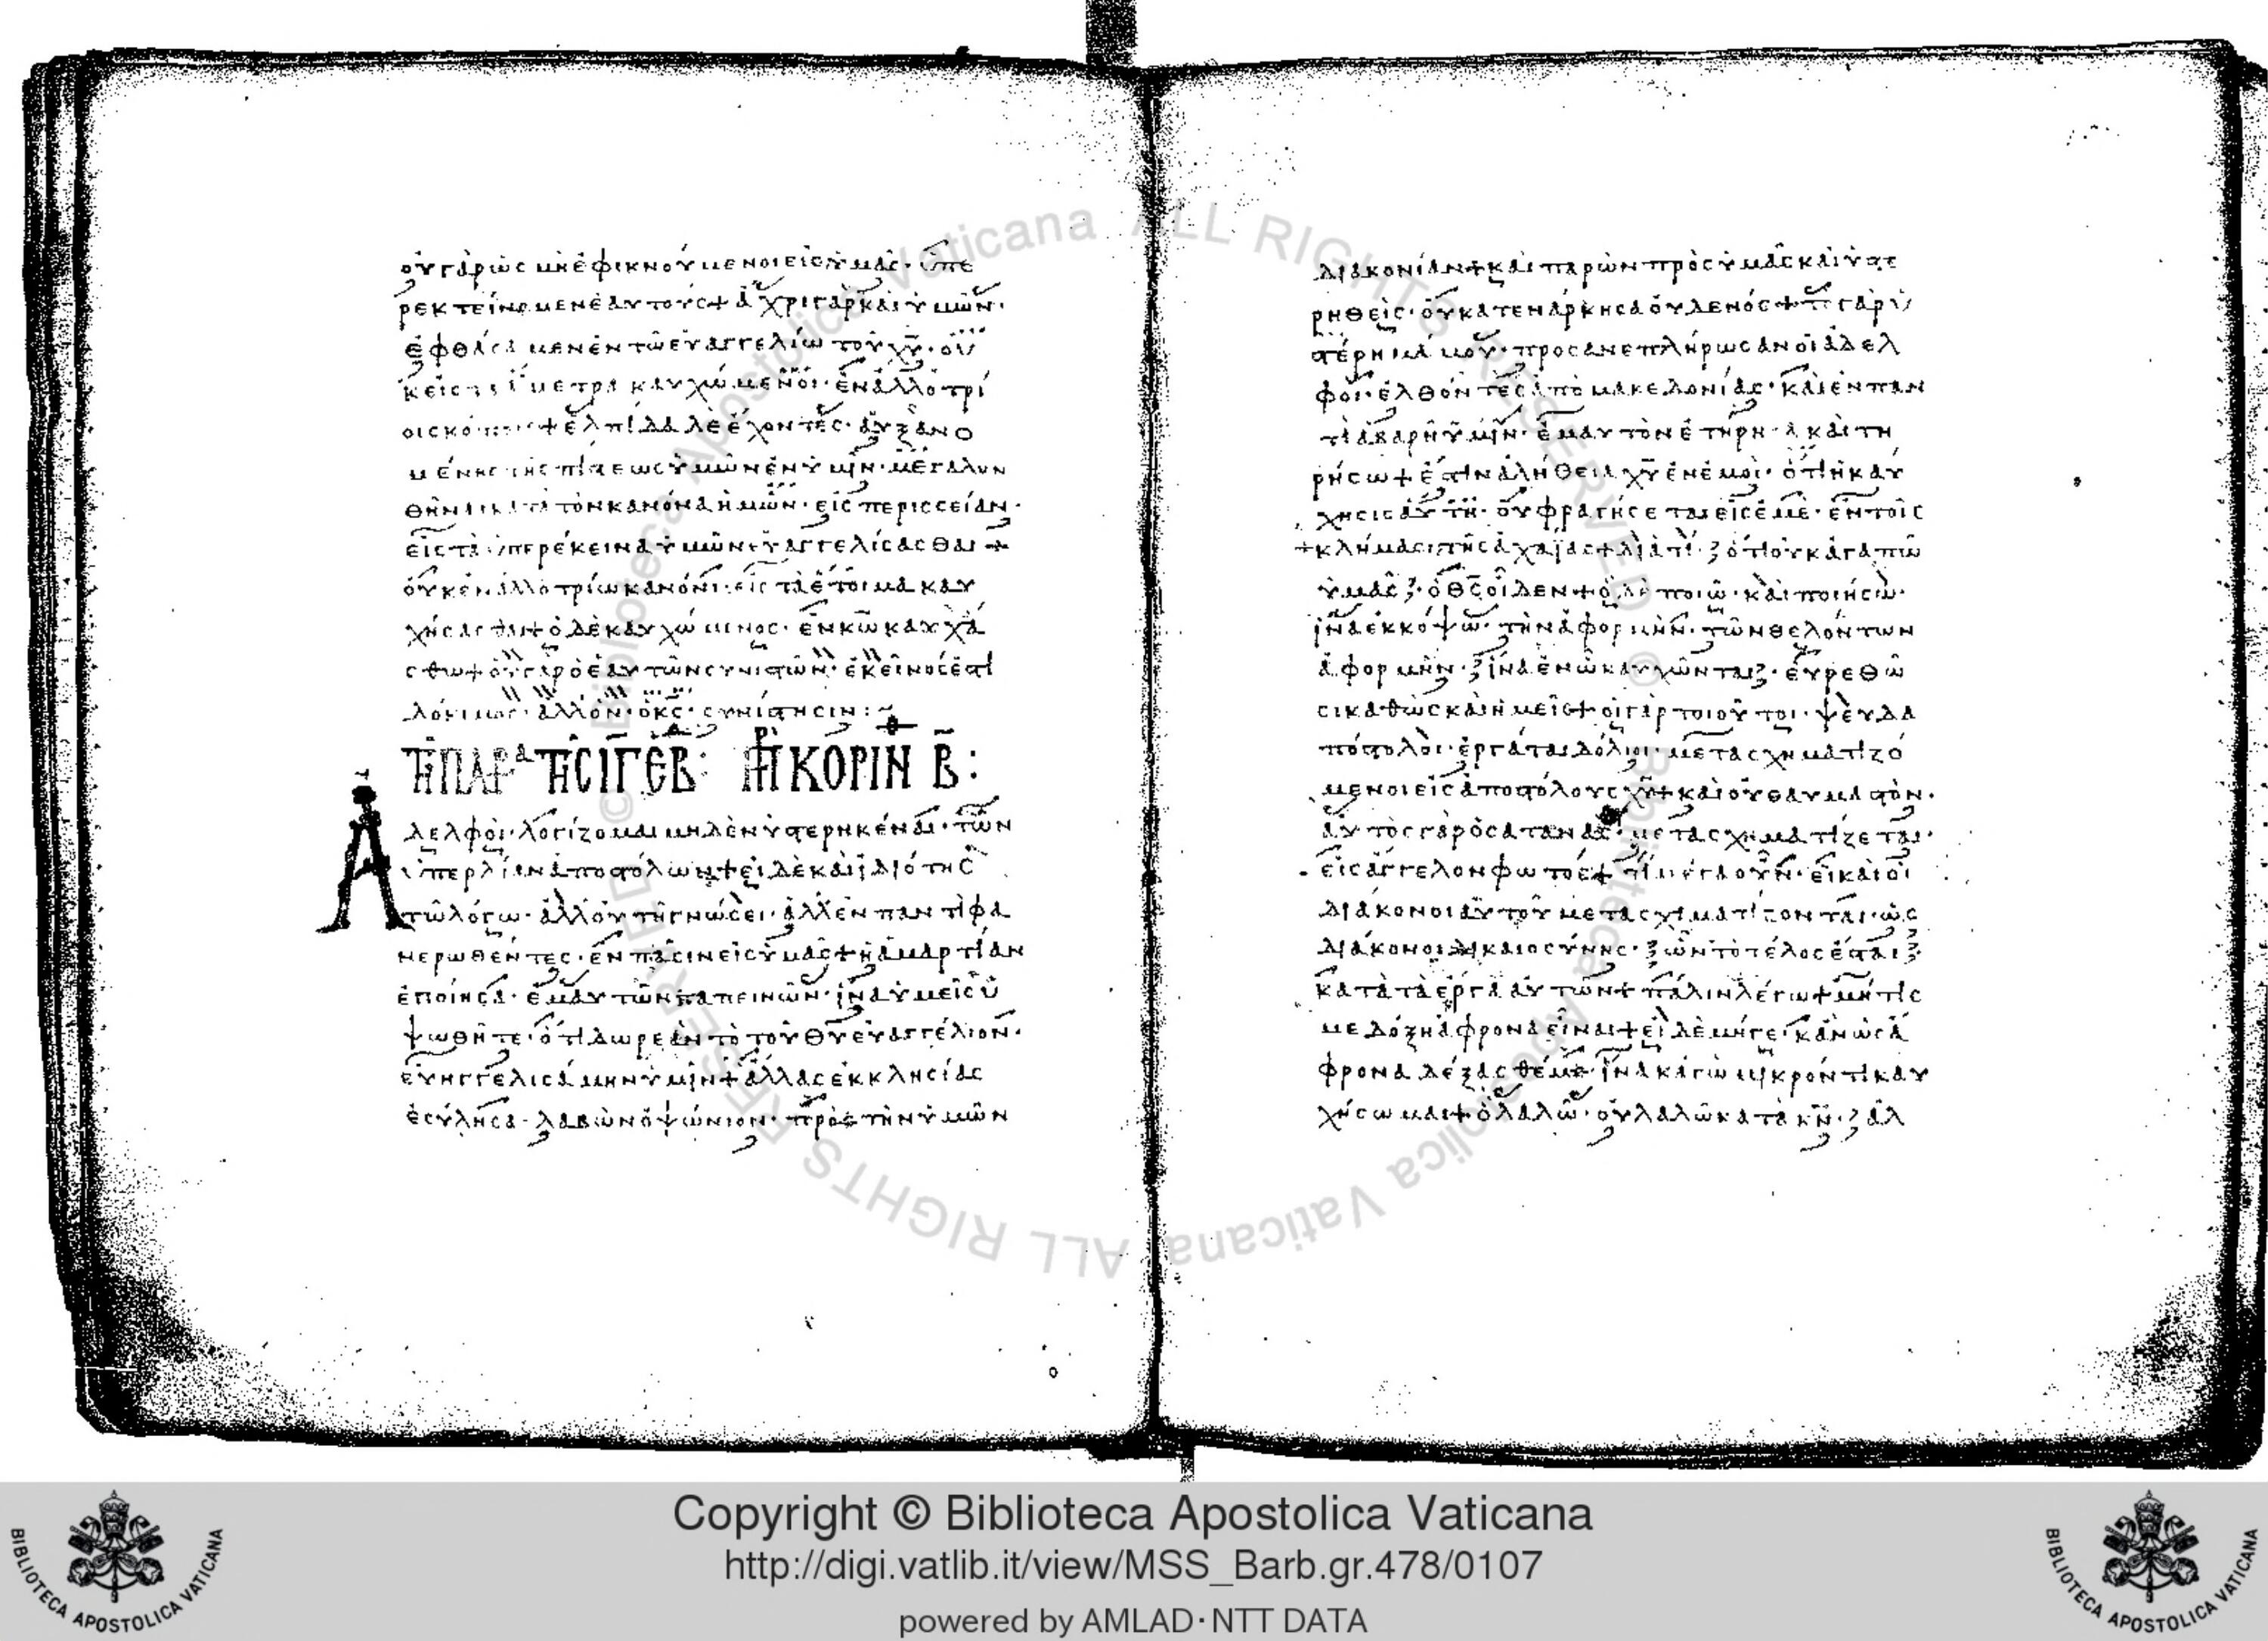 οὐ γὰρ ὡς μὴ ἐφικνούμενοι εἰς ὑμᾶς · ὑπε
ρεκτείνομεν ἑαυτούς + ἄχρι γὰρ καὶ ὑμῶν ·
ἐφθάσαμεν ἐν τῶ εὐαγγελίω τοῦ χυ · οὐ
κ εἰς τὰ ἄμετρα καυχώμενοι · ἐν ἀλλοτρί
οις κόποις + ἐλπίδα δὲ ἔχοντες · αὐξανο
μένης τῆς πίστεως ὑμῶν ἐν ὑμῖν · μεγαλυν
θῆναι κατὰ τὸν κανόνα ἡμῶν · εἰς περισσείαν ·
εἰς τὰ ὑπερέκεινα ὑμῶν εὐαγγελίσασθαι +
οὐκ ἐν ἀλλοτρίω κανόνι · εἰς τὰ ἕτοιμα καυ
χήσασθαι + ὁ δὲ καυχώμενος · ἐν κω καυχά
σθω + οὐ γὰρ ὁ ἑαυτὸν συνιστῶν · ἐκεῖνος ἐστὶ
δόκιμος · ἀλλ ὃν ὁ κς · συνίστησιν :
ΤΗ ΠΑΡα ΤΗΣ ΙΓ ΕΒ : ΠΡ ΚΟΡΙΝ Β :
Ἀδελφοὶ · λογίζομαι μηδὲν ὑστερηκέναι · τῶν
ὑπερλίαν ἀποστόλων + εἰ δὲ καὶ ἰδιότης
τῶ λόγω · ἀλλ οὐ τῆ γνώσει · ἀλλ ἐν παντὶ φα
νερωθέντες · ἐν πᾶσιν εἰς ὑμᾶς + ἢ ἁμαρτίαν
ἐποίησα · ἐμαυτὼν ταπεινῶν · ἵνα ὑμεῖς ὑ
ψωθῆτε · ὅτι δωρεὰν τὸ τοῦ θυ εὐαγγέλιον ·
εὐηγγελισάμην ὑμῖν + ἄλλας ἐκκλησίας
ἐσύλησα · λαβὼν ὀψώνιον · πρὸς τὴν ὑμῶν
διακονίαν + καὶ παρὼν πρὸς ὑμᾶς καὶ ὑστε
ρηθεὶς · οὐ κατενάρκησα οὐδενός + τὸ γὰρ ὑ
στέρημά μου · προσανεπλήρωσαν οἱ ἀδελ
φοὶ · ἐλθόντες ἀπὸ μακεδονίας · καὶ ἐν παν
τὶ ἀβαρῆ ὑμῖν · ἐμαυτὸν ἐτήρησα καὶ τη
ρήσω + ἔστιν ἀλήθεια χυ ἐν ἐμοὶ · ὅτι ἡ καύ
χησις αὕτη · οὐ φραγήσεται εἰς ἐμὲ · ἐν τοῖς
+ κλήμασι τῆς ἀχαΐας + διὰ τί · ὅτι οὐκ ἀγαπῶ
ὑμᾶς · ὁ θς οἶδεν + ὃ δὲ ποιῶ · καὶ ποιήσω ·
ἵνα ἐκκόψω · τὴν ἀφορμὴν · τῶν θελόντων
ἀφορμὴν · ἵνα ἐν ὧ καυχῶνται · εὑρεθῶ
σι καθὼς καὶ ἡμεῖς + οἱ γὰρ τοιοῦτοι · ψευδα
πόστολοι · ἐργάται δόλιοι · μετασχηματιζό
μενοι εἰς ἀποστόλους χυ + καὶ οὐ θαυμαστόν ·
αὐτὸς γὰρ ὁ σατανᾶς · μετασχηματίζεται ·
εἰς ἄγγελον φωτός + τί μέγα οὖν · εἰ καὶ οἱ
διάκονοι αὐτοῦ μετασχηματίζονται · ὡς
διάκονοι δικαιοσύνης · ὧν τὸ τέλος ἔσται
κατὰ τὰ ἔργα αὐτῶν + πάλιν λέγω + μή τις
με δόξη ἄφρονα εἶναι + εἰ δὲ μήγε · κἂν ὡς ἄ
φρονα δέξασθέ με · ἵνα κἀγὼ μικρόν τι καυ
χήσωμαι + ὃ λαλῶ · οὐ λαλῶ κατὰ κν · ἀλ
Copyright © Biblioteca Apostolica Vaticana
http://digi.vatlib.it/view/MSS_Barb.gr.478/0107
powered by AMLAD·NTT DATA